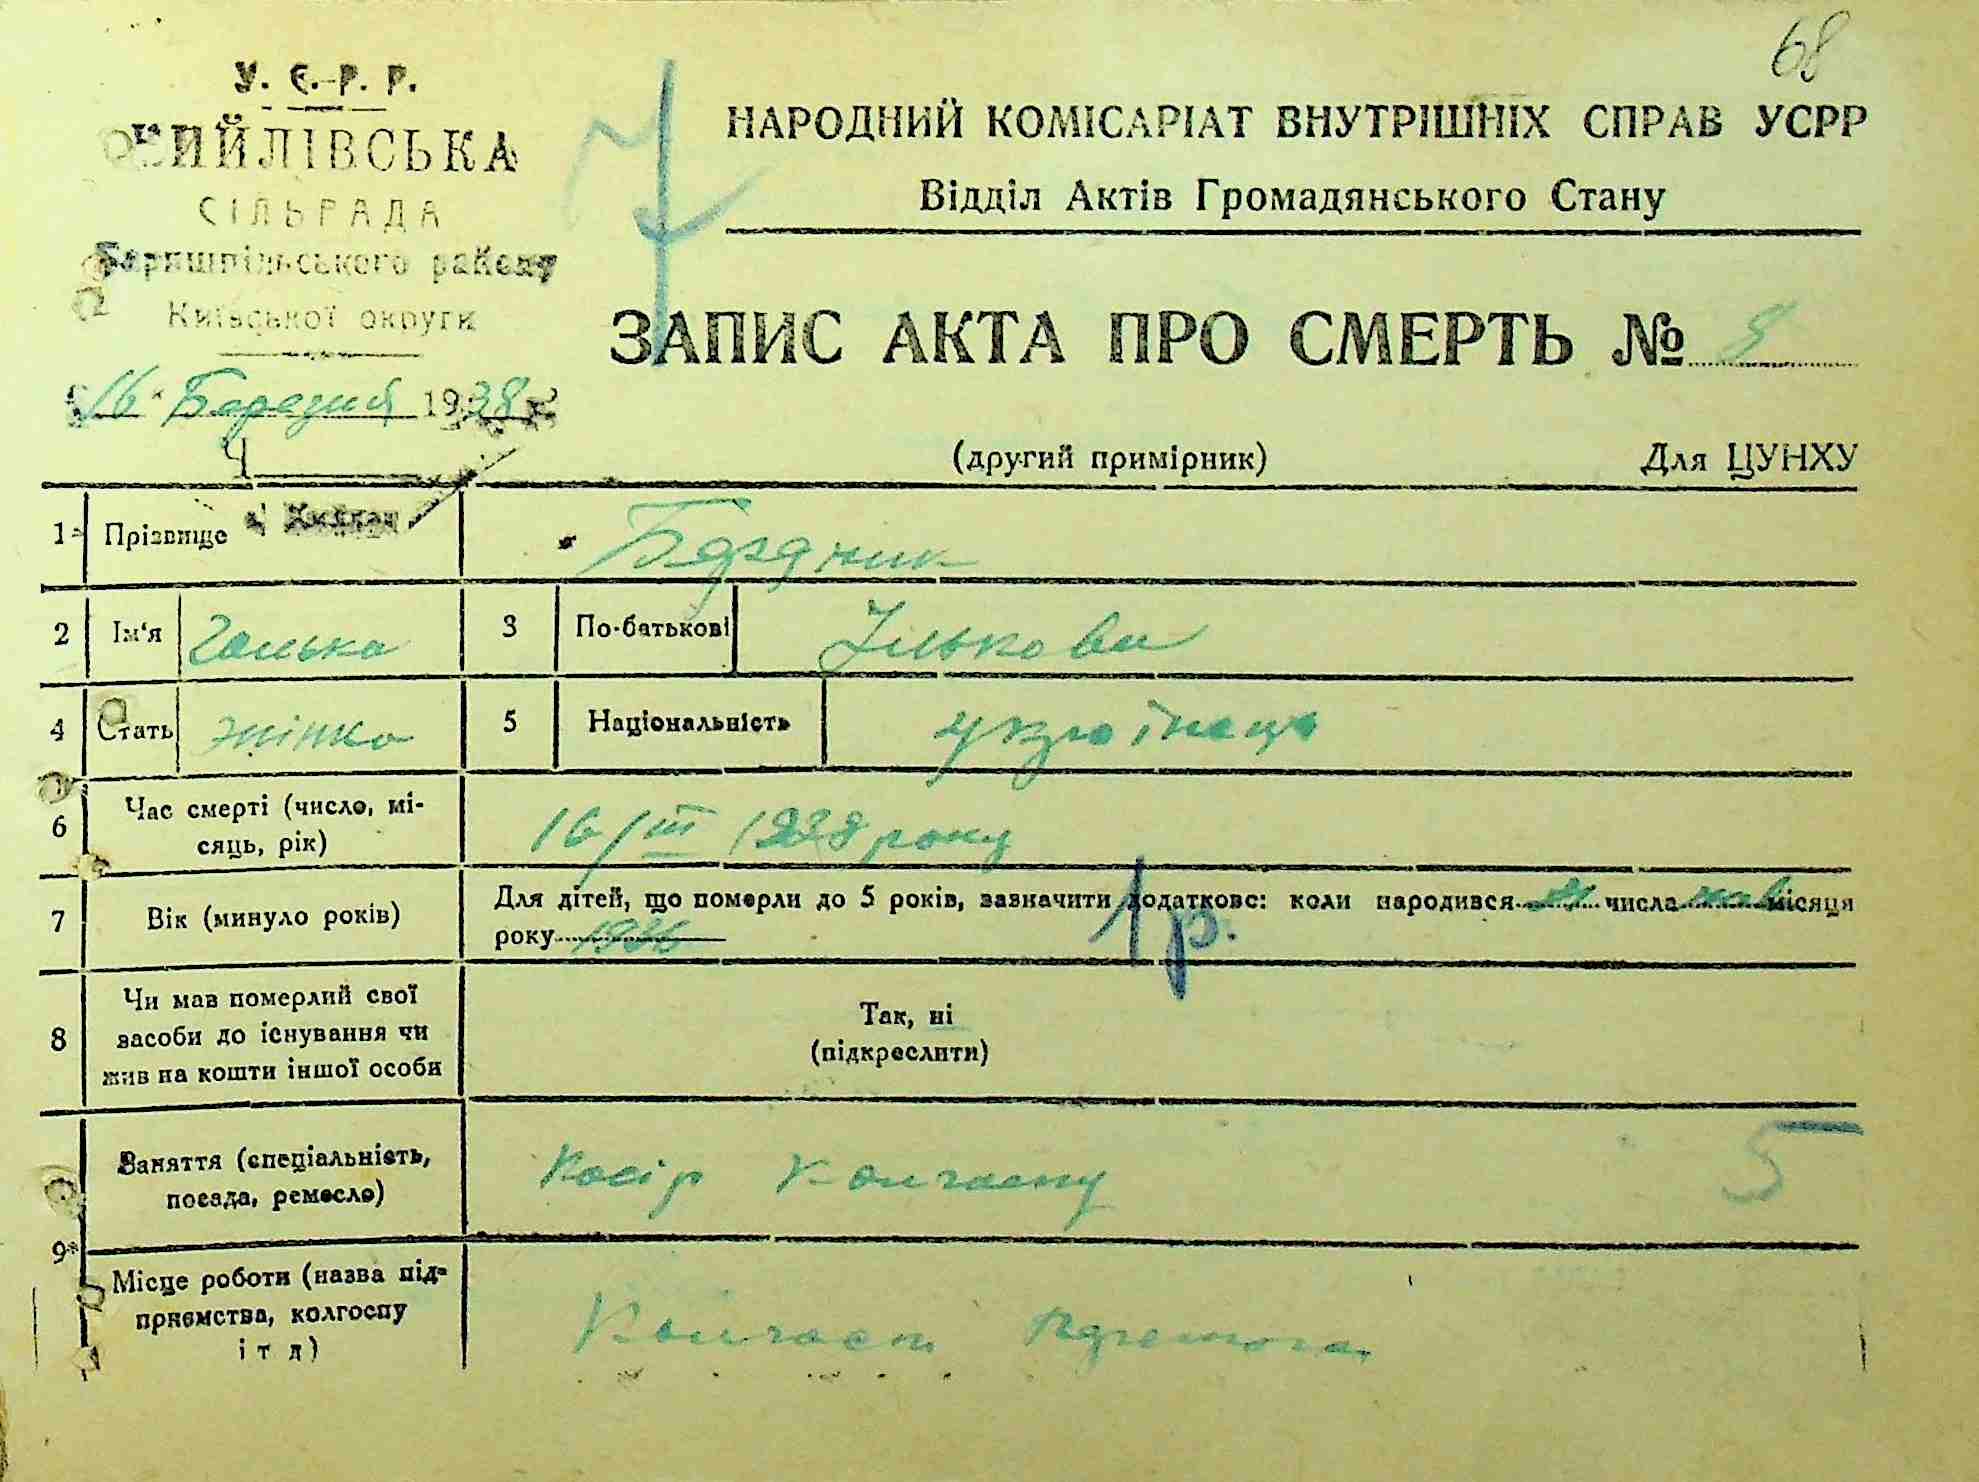 68
У. С. Р. Р.
КИЙЛІВСЬКА
СІЛЬРАДА
Баришпільського району
Київської округи
16 Березня 1938
7
НАРОДНИЙ КОМІСАРІАТ ВНУТРІШНІХ СПРАВ УСРР
Відділ Актів Громадянського Стану
ЗАПИС АКТА ПРО СМЕРТЬ № 8
(другий примірник) Для ЦУНХУ
1 Прізвище Бердник
2 Ім'я Галька 3 По-батькові Ількова
4 Стать жінка 5 Національність українець
6 Час смерті (число, мі-
сяць, рік) 16/III 1938 року
7 Вік (минуло років) Для дітей, що померли до 5 років, зазначити додатково: коли народився числа місяця
року 1936 1 р.
8 Чи мав померлий свої
засоби до існування чи
жив на кошти іншої особи
Так, ні
(підкреслити)
9* Заняття (спеціальність,
посада, ремесло)
5
Місце роботи (назва під-
приємства, колгоспу
і т д)